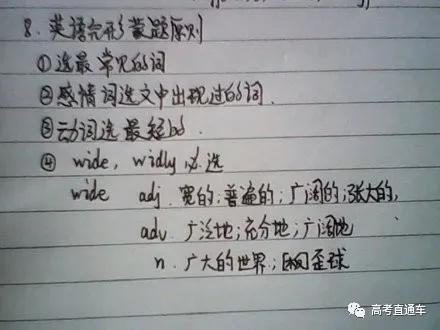 8. 英语完形蒙题原则
①选最常见的词
②感情词选文中出现过的词.
③动词选最短的.
④ wide, widly 必选
wide adj. 宽的; 普遍的; 广阔的; 张大的,
adv. 广泛地; 充分地; 广阔地
n. 广大的世界; 歪球
高考直通车